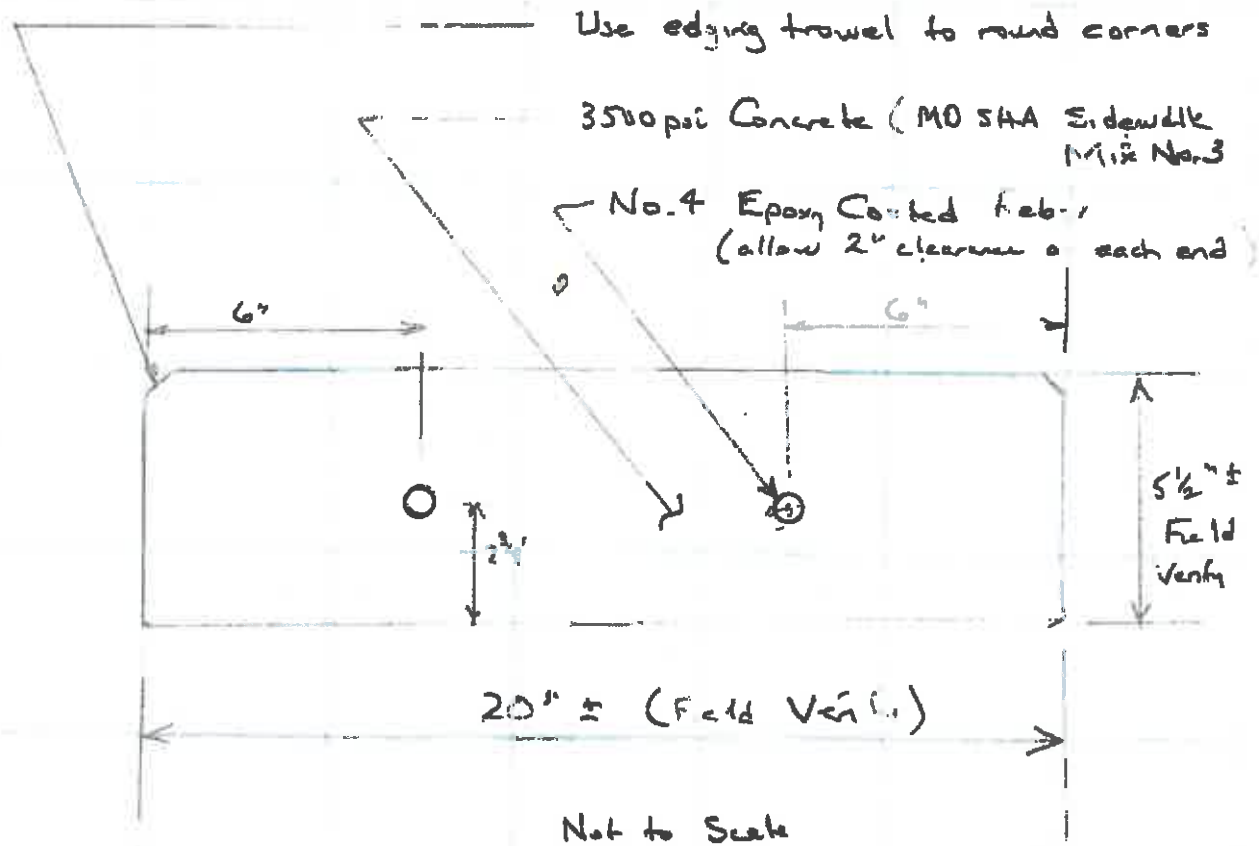 Use edging trowel to round corners
3500 psi Concrete (MD SHA Sidewalk
Mix No. 3
No. 4 Epoxy Coated Rebar
(allow 2" clearance @ each end)
6"
6"
5½" ±
Field
Verify
20" ± (Field Verify)
Not to Scale